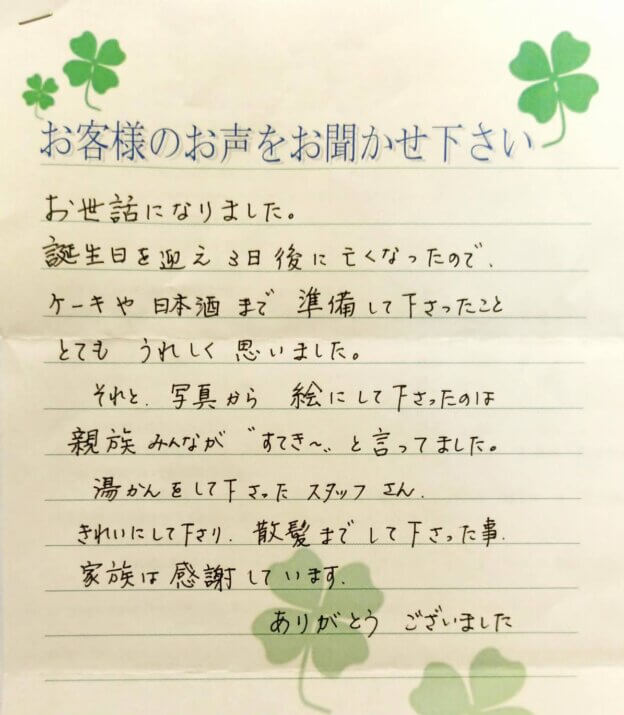 お客様のお声をお聞かせ下さい
お世話になりました。
誕生日を迎え3日後に亡くなったので、
ケーキや日本酒まで準備して下さったこと
とてもうれしく思いました。
それと、写真から絵にして下さったのは
親族みんなが〝すてき〜〟と言ってました。
湯かんをして下さったスタッフさん、
きれいにして下さり、散髪までして下さった事、
家族は感謝しています。
ありがとうございました